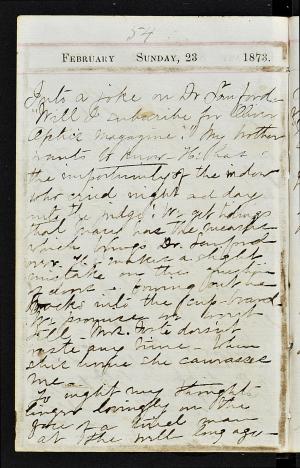 54
FEBRUARY SUNDAY, 23 1873.
Puts a joke on Dr. Sanford
"Will I subscribe for Oliver
Optic's magazine?" My brother
wants to know. He has
the importunity of the widow
who cried night and day
unto the judge. We get
that has the measles
which brings Dr. Sanford
over. He makes a slight
mistake on the question
of doors & coming out he
walks into the cup-board
We promise
tell Mrs. doesn't
waste any time. When
she comes she canvasses
me.
To night my thoughts
linger lovingly on the
face of a tired man
at the well long ago